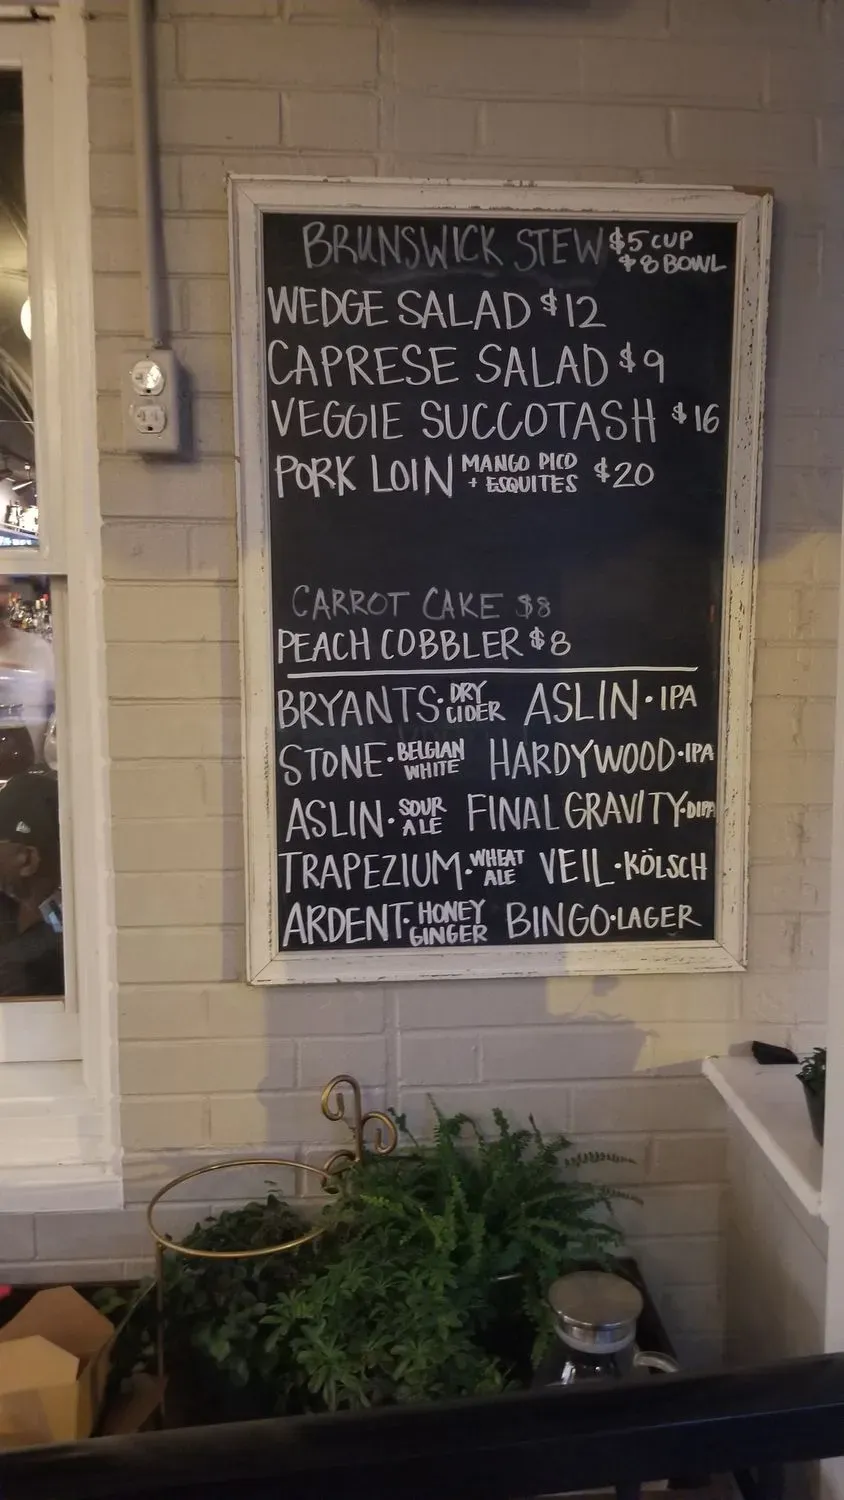 BRUNSWICK STEW $5 CUP
$8 BOWL
WEDGE SALAD $12
CAPRESE SALAD $9
VEGGIE SUCCOTASH $16
PORK LOIN MANGO PICO + ESQUITES $20
CARROT CAKE $8
PEACH COBBLER $8
BRYANTS · DRY CIDER ASLIN · IPA
STONE · BELGIAN WHITE HARDYWOOD · IPA
ASLIN · SOUR ALE FINAL GRAVITY · DIPA
TRAPEZIUM · WHEAT ALE VEIL · KÖLSCH
ARDENT · HONEY GINGER BINGO · LAGER